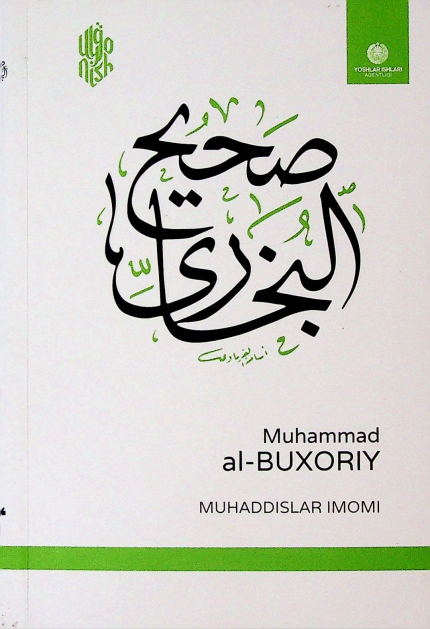 YOSHLAR ISHLARI
AGENTLIGI
صحيح
البخاري
Muhammad
al-BUXORIY
MUHADDISLAR IMOMI